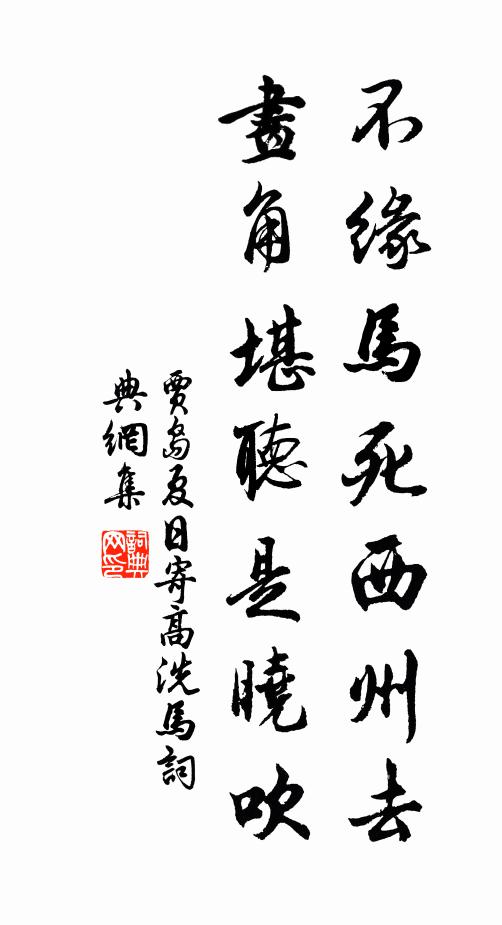 不緣馬死西州去
畫角堪聽是曉吹
賈島夏日寄高洗馬詞
典網集
詞典
网印